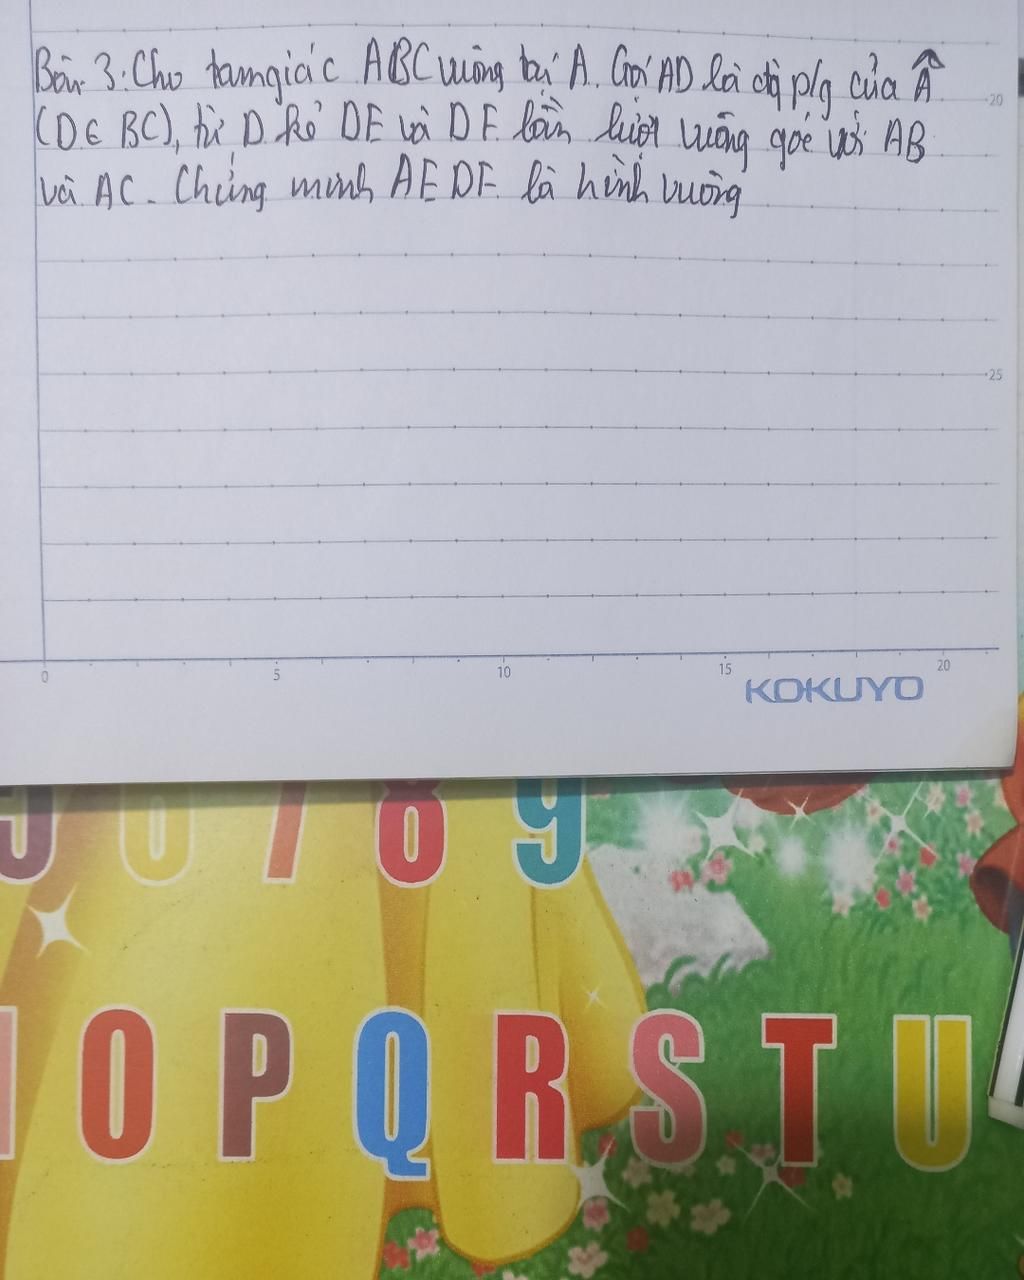 Bài 3: Cho tam giác ABC vuông tại A. Gọi AD là đg p/g của Â
(D ∈ BC), từ D kẻ DE và DF lần lượt vuông góc với AB
và AC. Chứng minh AEDF là hình vuông
20
25
0 5 10 15 20
KOKUYO
5 6 7 8 9
O P Q R S T U